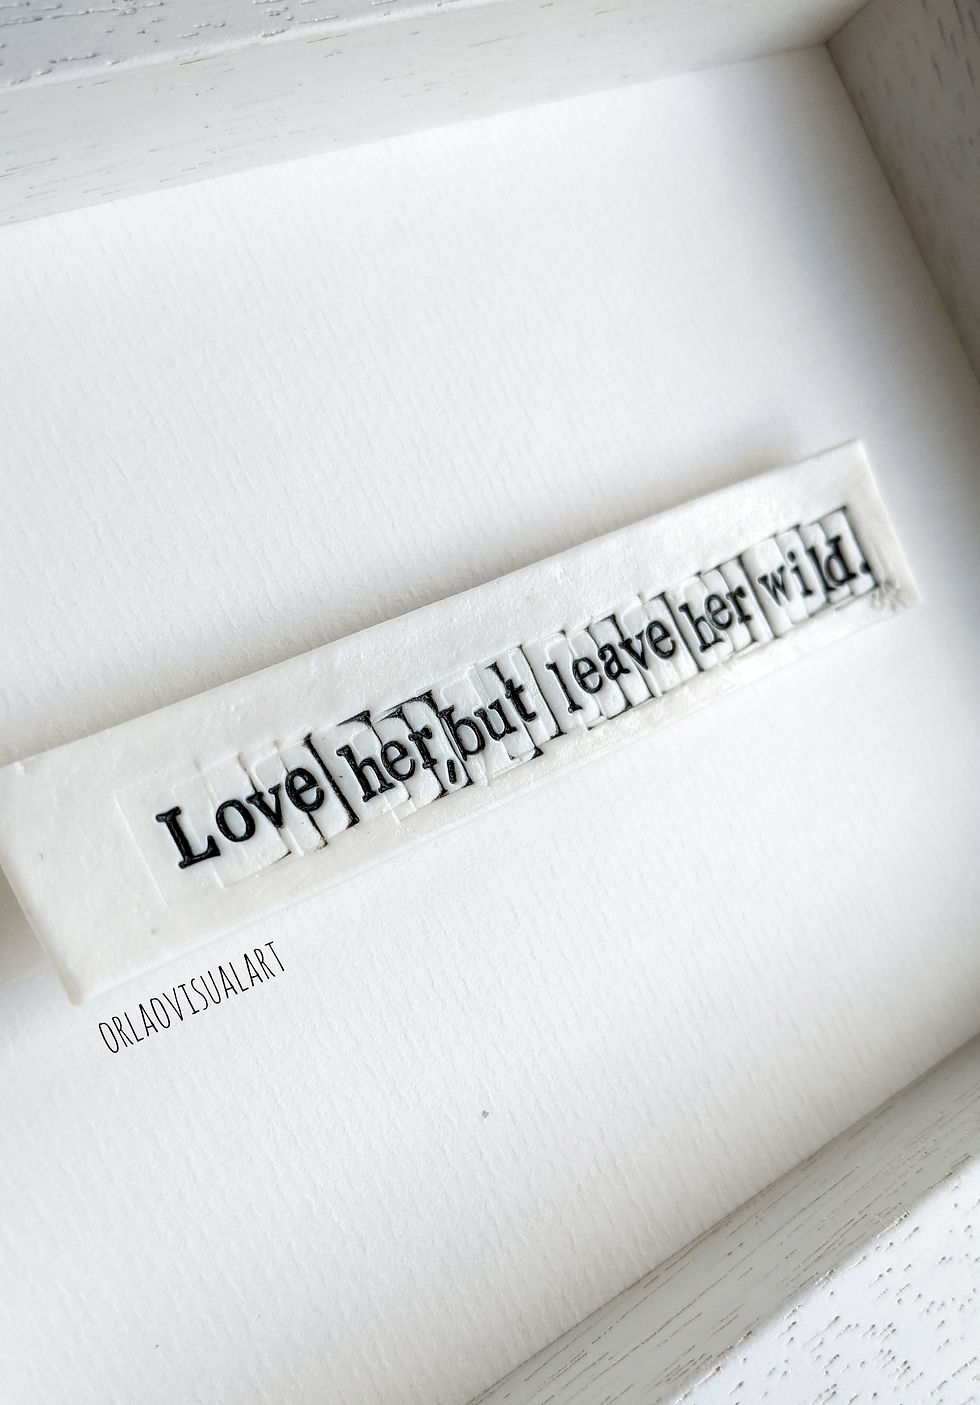 Love her, but leave her wild.
ORLAOVISUALART